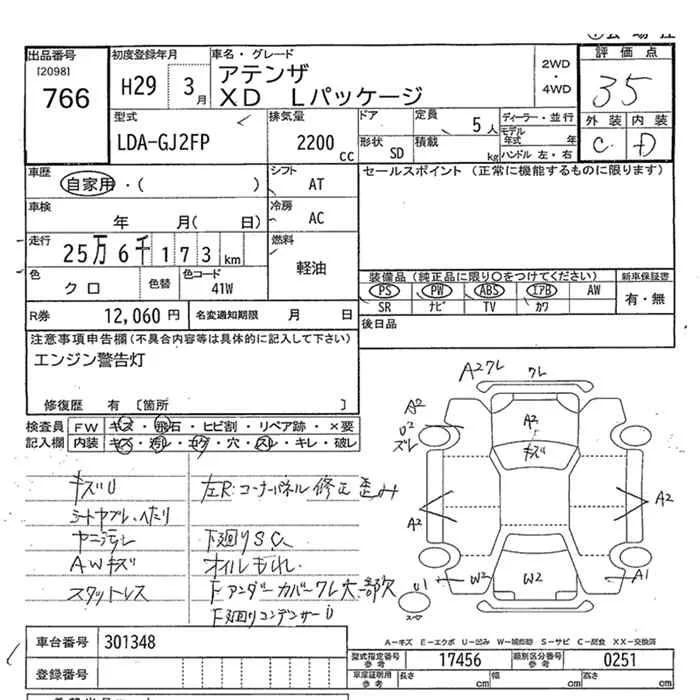 出品番号 初度登録年月 車名・グレード 2WD・4WD 評価点
[2098]
766 H29 3月 アテンザ
XD Lパッケージ 35
型式 排気量 ドア 定員 5人 ディーラー・並行 外装 内装
LDA-GJ2FP 2200cc 形状 SD 積載 kg モデル年式 年 C D
ハンドル 左・右
車歴 自家用・( ) シフト AT セールスポイント (正常に機能するものに限ります)
車検 年 月( 日) 冷房 AC
走行 25万6千173km 燃料 軽油
色 クロ 色替 色コード 41W 装備品(純正品に限り○をつけてください) 新車保証書
PS PW ABS エアB AW 有・無
SR ナビ TV カワ
R券 12,060円 名変通知期限 月 日 後日品
注意事項申告欄(不具合内容等は具体的に記入して下さい)
エンジン警告灯
修復歴 有 〔箇所 〕
検査員記入欄 FW キズ・飛石・ヒビ割・リペア跡・×要
内装 キズ・汚レ・コゲ・穴・スレ・キレ・破レ
A2クレ クレ
A2
U2
ズレ
A2 キズ
A2 A2
U1 W2 W2 A1
スペア
キズU 左R:コーナーパネル修正歪み
シートヤブレ、へたり
ヤニ汚レ 下廻りSC、
AWキズ オイルもれ、
スタットレス Fアンダーカバークレ大一部欠
F下廻りコンデンサーU
A-キズ E-エクボ U-凹み W-補修跡 S-サビ C-腐食 XX-交換済
車台番号 301348 型式指定番号 参考 17456 類別区分番号 参考 0251
登録番号 車庫証明用 参考 長さ cm 幅 cm 高さ cm